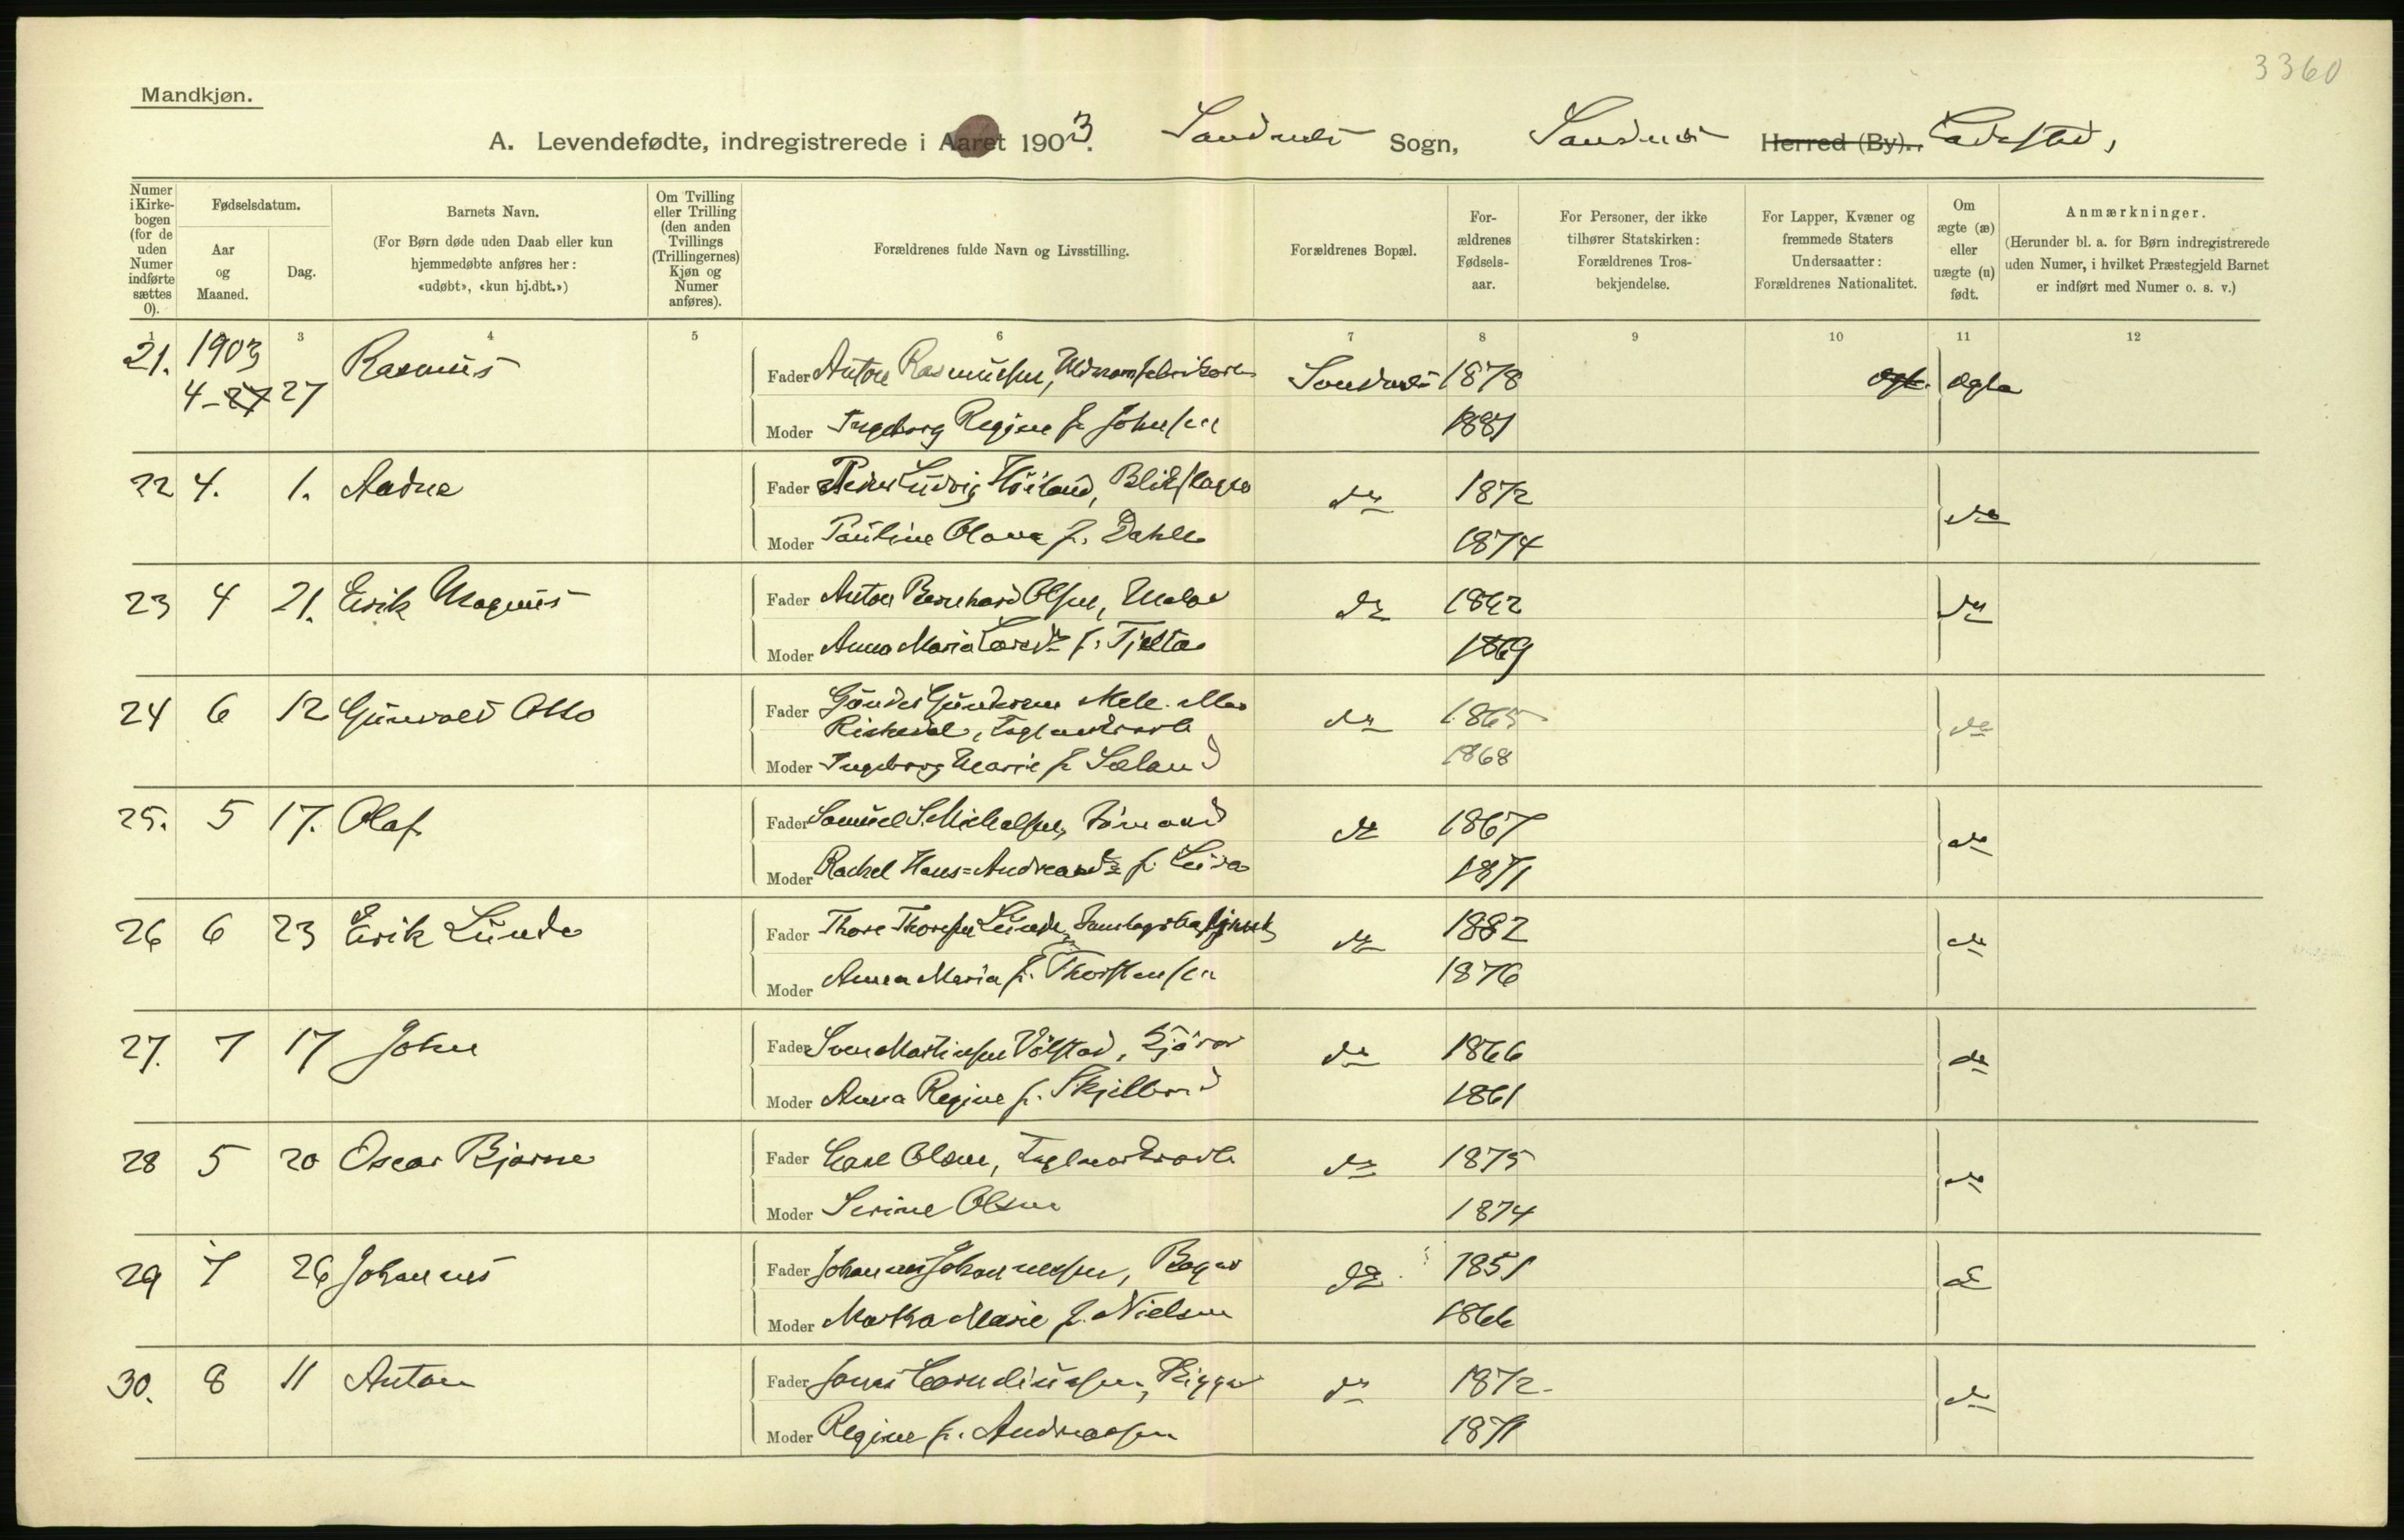 3360
Mandkjøn.
A. Levendefødte, indregistrerede i Aaret 1903. Sandnes Sogn, Sandnes Herred (By). Ladested,
Numer i Kirkebogen (for de uden Numer indførte sættes 0).
Fødselsdatum.
Aar og Maaned.
Dag.
Barnets Navn.
(For Børn døde uden Daab eller kun hjemmedøbte anføres her: «udøbt», «kun hj.dbt.»)
Om Tvilling eller Trilling (den anden Tvillings (Trillingernes) Kjøn og Numer anføres).
Forældrenes fulde Navn og Livsstilling.
Forældrenes Bopæl.
Forældrenes Fødselsaar.
For Personer, der ikke tilhører Statskirken: Forældrenes Trosbekjendelse.
For Lapper, Kvæner og fremmede Staters Undersaatter: Forældrenes Nationalitet.
Om ægte (æ) eller uægte (u) født.
Anmærkninger.
(Herunder bl. a. for Børn indregistrerede uden Numer, i hvilket Præstegjeld Barnet er indført med Numer o. s. v.)
1 3 4 5 6 7 8 9 10 11 12
21. 1903 4-27 27 Rasmus Fader Anton Rasmussen, Sandnes 1878 Ægte
Moder Ingeborg Regine f. Johnsen 1881
22 4. 1. Aadne Fader Peder Ludvig Höiland, Blikslager do 1872 do
Moder Pauline Olava f. Dahle 1874
23 4 21. Erik Magnus Fader Anton Bernhard Olsen, Maler do do
Moder Anna Maria Larsdr f. Tjelta 1869
24 6 12 Gunvald Otto Fader Gunder Gundersen Mele eller
Riskedal, Teglverksarb do 1865 do
Moder Ingeborg Marie f. Sæland 1868
25. 5 17. Olaf Fader Samuel S. Mikalsen, Sömand do 1867 do
Moder Rachel Hans=Andreasdr f. Leira 1871
26 6 23 Erik Lunde Fader Thore Thoresen Lunde, do 1882 do
Moder Anna Maria f. Thorstensen 1876
27. 7 17 John Fader Sven Martinsen Völstad, Kjörer do 1866 do
Moder Anna Regine f. Skjelbred 1861
28 5 20 Oscar Bjarne Fader Carl Olsen, Teglverksarb do 1875 do
Moder Serine Olsen 1874
29 7 26 Johannes Fader Johannes Johannessen, Bager do 1851 do
Moder Martha Marie f. Nielsen 1866
30. 8 11 Anton Fader Jonas Corneliussen, Rigger do 1872. do
Moder Regine f. Andreassen 1871